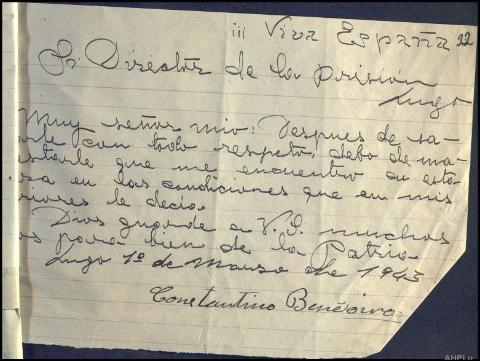 iii Viva España 22
Sr. Director de la prisión
Lugo
Muy señor mio: Despues de sa-
arle con todo respeto, debo de ma-
estarle que me encuentro en esta
sa en las condiciones que en mis
riores le decia.
Dios guarde a V. S. muchos
os para bien de la Patria
Lugo 1º de Marzo de 1943
Constantino
AHPLu